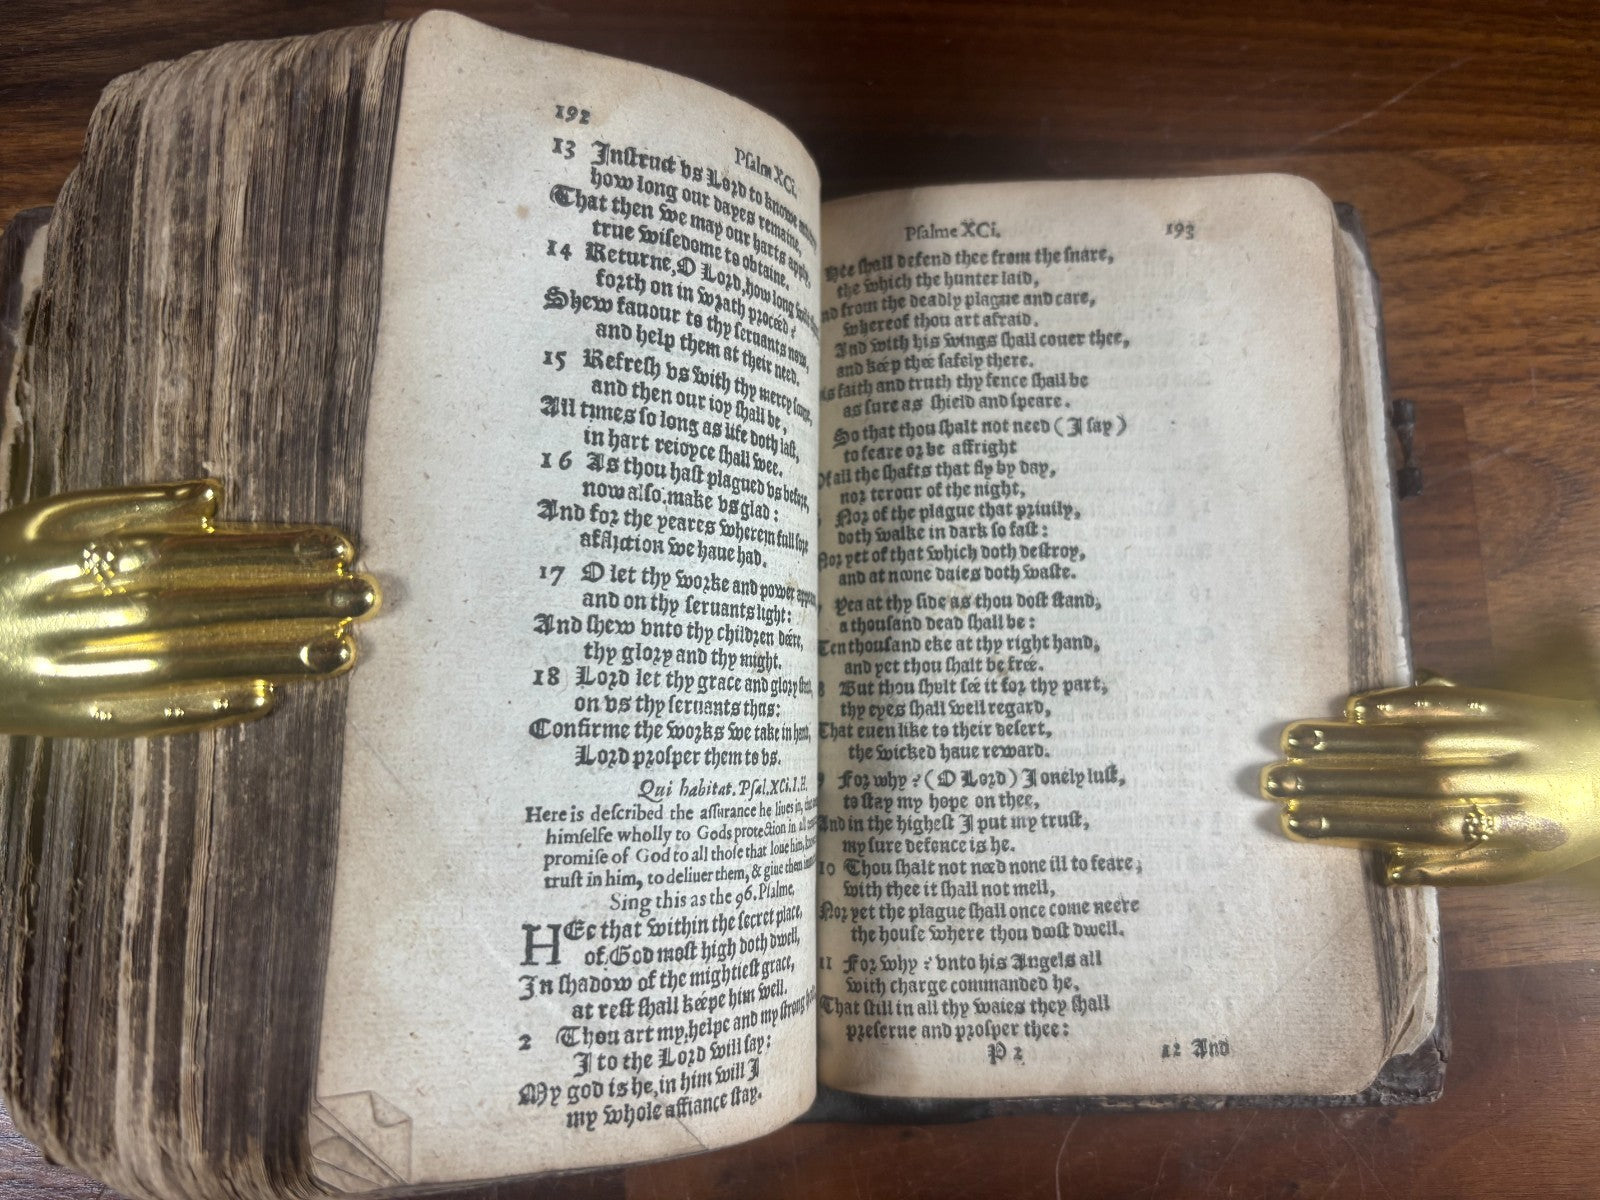 192
Psalme XCi.
13 Instruct vs Lord to knowe
how long our dayes remaine,
That then we may our harts apply,
true wisedome to obtaine.
14 Returne, O Lord, how long
forth on in wrath procéed?
Shew fauour to thy seruants now,
and help them at their néed.
15 Refresh vs with thy mercy
and then our ioy shall be,
All times so long as life doth last,
in hart reioyce shall wee.
16 As thou hast plagued vs before,
now also make vs glad:
And for the yeares wherein full
affliction we haue had.
17 O let thy worke and power
and on thy seruants light:
And shew vnto thy children déere,
thy glory and thy might.
18 Lord let thy grace and glory
on vs thy seruants thus:
Confirme the works we take in hand,
Lord prosper them to vs.
Qui habitat. Psal. XCi. I. H.
Here is described the assurance he liues in,
himselfe wholly to Gods protection in all
promise of God to all those that loue him,
trust in him, to deliuer them, & giue them
Sing this as the 96. Psalme.
HEe that within the secret place,
of God most high doth dwell,
In shadow of the mightiest grace,
at rest shall kéepe him well.
2 Thou art my helpe and my strong
I to the Lord will say:
My god is he, in him will I
my whole affiance stay.
Psalme XCi.
193
Hee shall defend thee from the snare,
the which the hunter laid,
And from the deadly plague and care,
whereof thou art afraid.
And with his wings shall couer thee,
and kéep thée safely there.
His faith and truth thy fence shall be
as sure as shield and speare.
So that thou shalt not need (I say)
to feare or be affright
Of all the shafts that fly by day,
nor terour of the night,
Nor of the plague that priuily,
doth walke in dark so fast:
Nor yet of that which doth destroy,
and at noone daies doth waste.
Yea at thy side as thou dost stand,
a thousand dead shall be:
Ten thousand eke at thy right hand,
and yet thou shalt be frée.
8 But thou shalt sée it for thy part,
thy eyes shall well regard,
That euen like to their desert,
the wicked haue reward.
9 For why? (O Lord) I onely lust,
to stay my hope on thee,
And in the highest I put my trust,
my sure defence is he.
10 Thou shalt not néed none ill to feare,
with thee it shall not mell,
Nor yet the plague shall once come neere
the house where thou doost dwell.
11 For why? vnto his Angels all
with charge commanded he,
That still in all thy waies they shall
preserue and prosper thee:
P 2
12 And